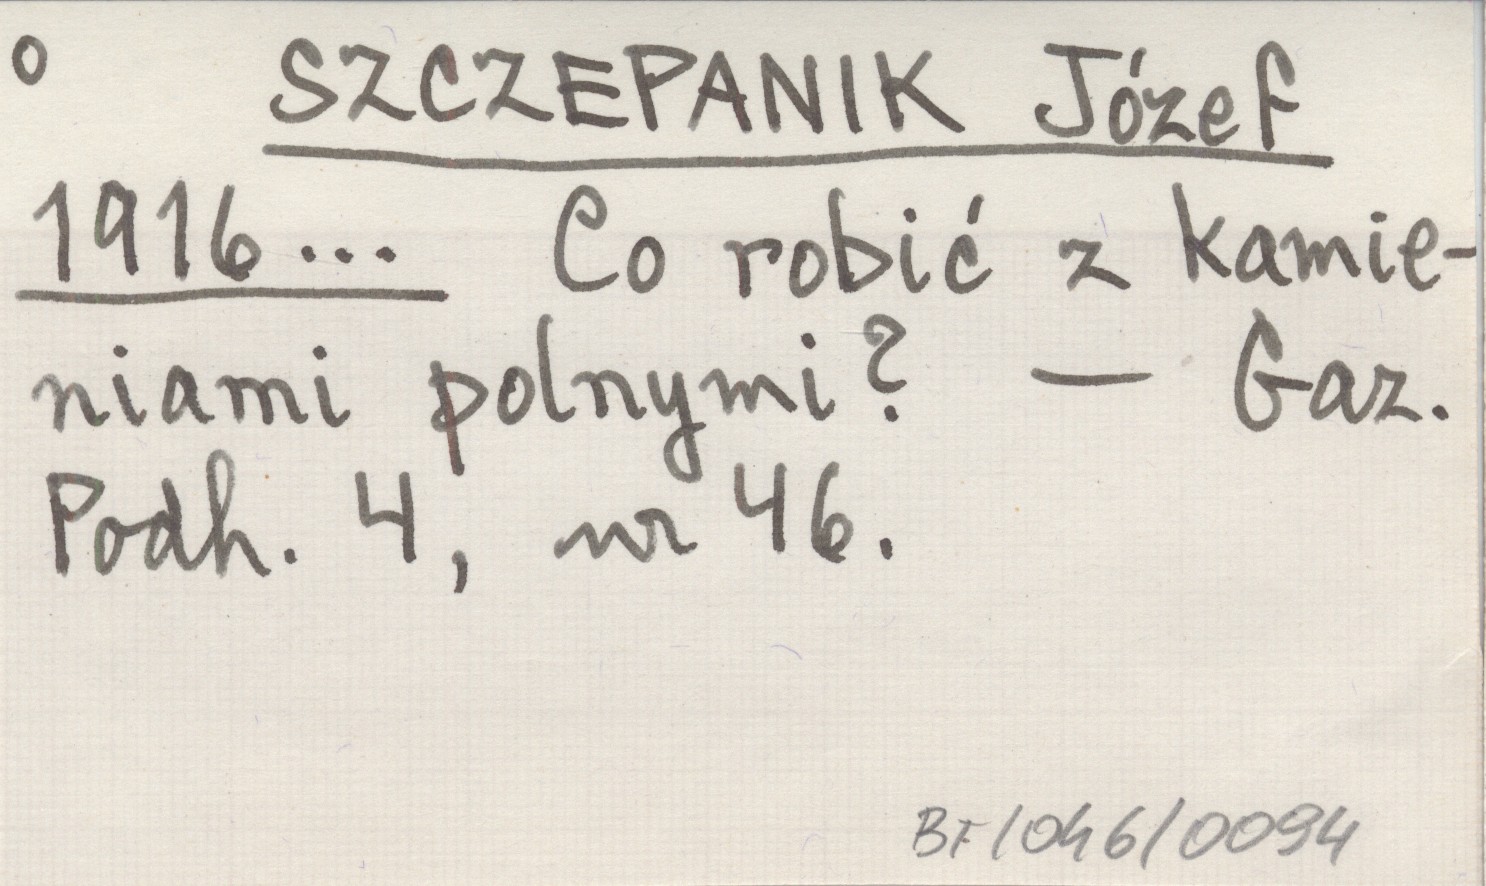 o SZCZEPANIK Józef
1916... Co robić z kamie-
niami polnymi? — Gaz.
Podh. 4, nr 46.
BF/046/0094